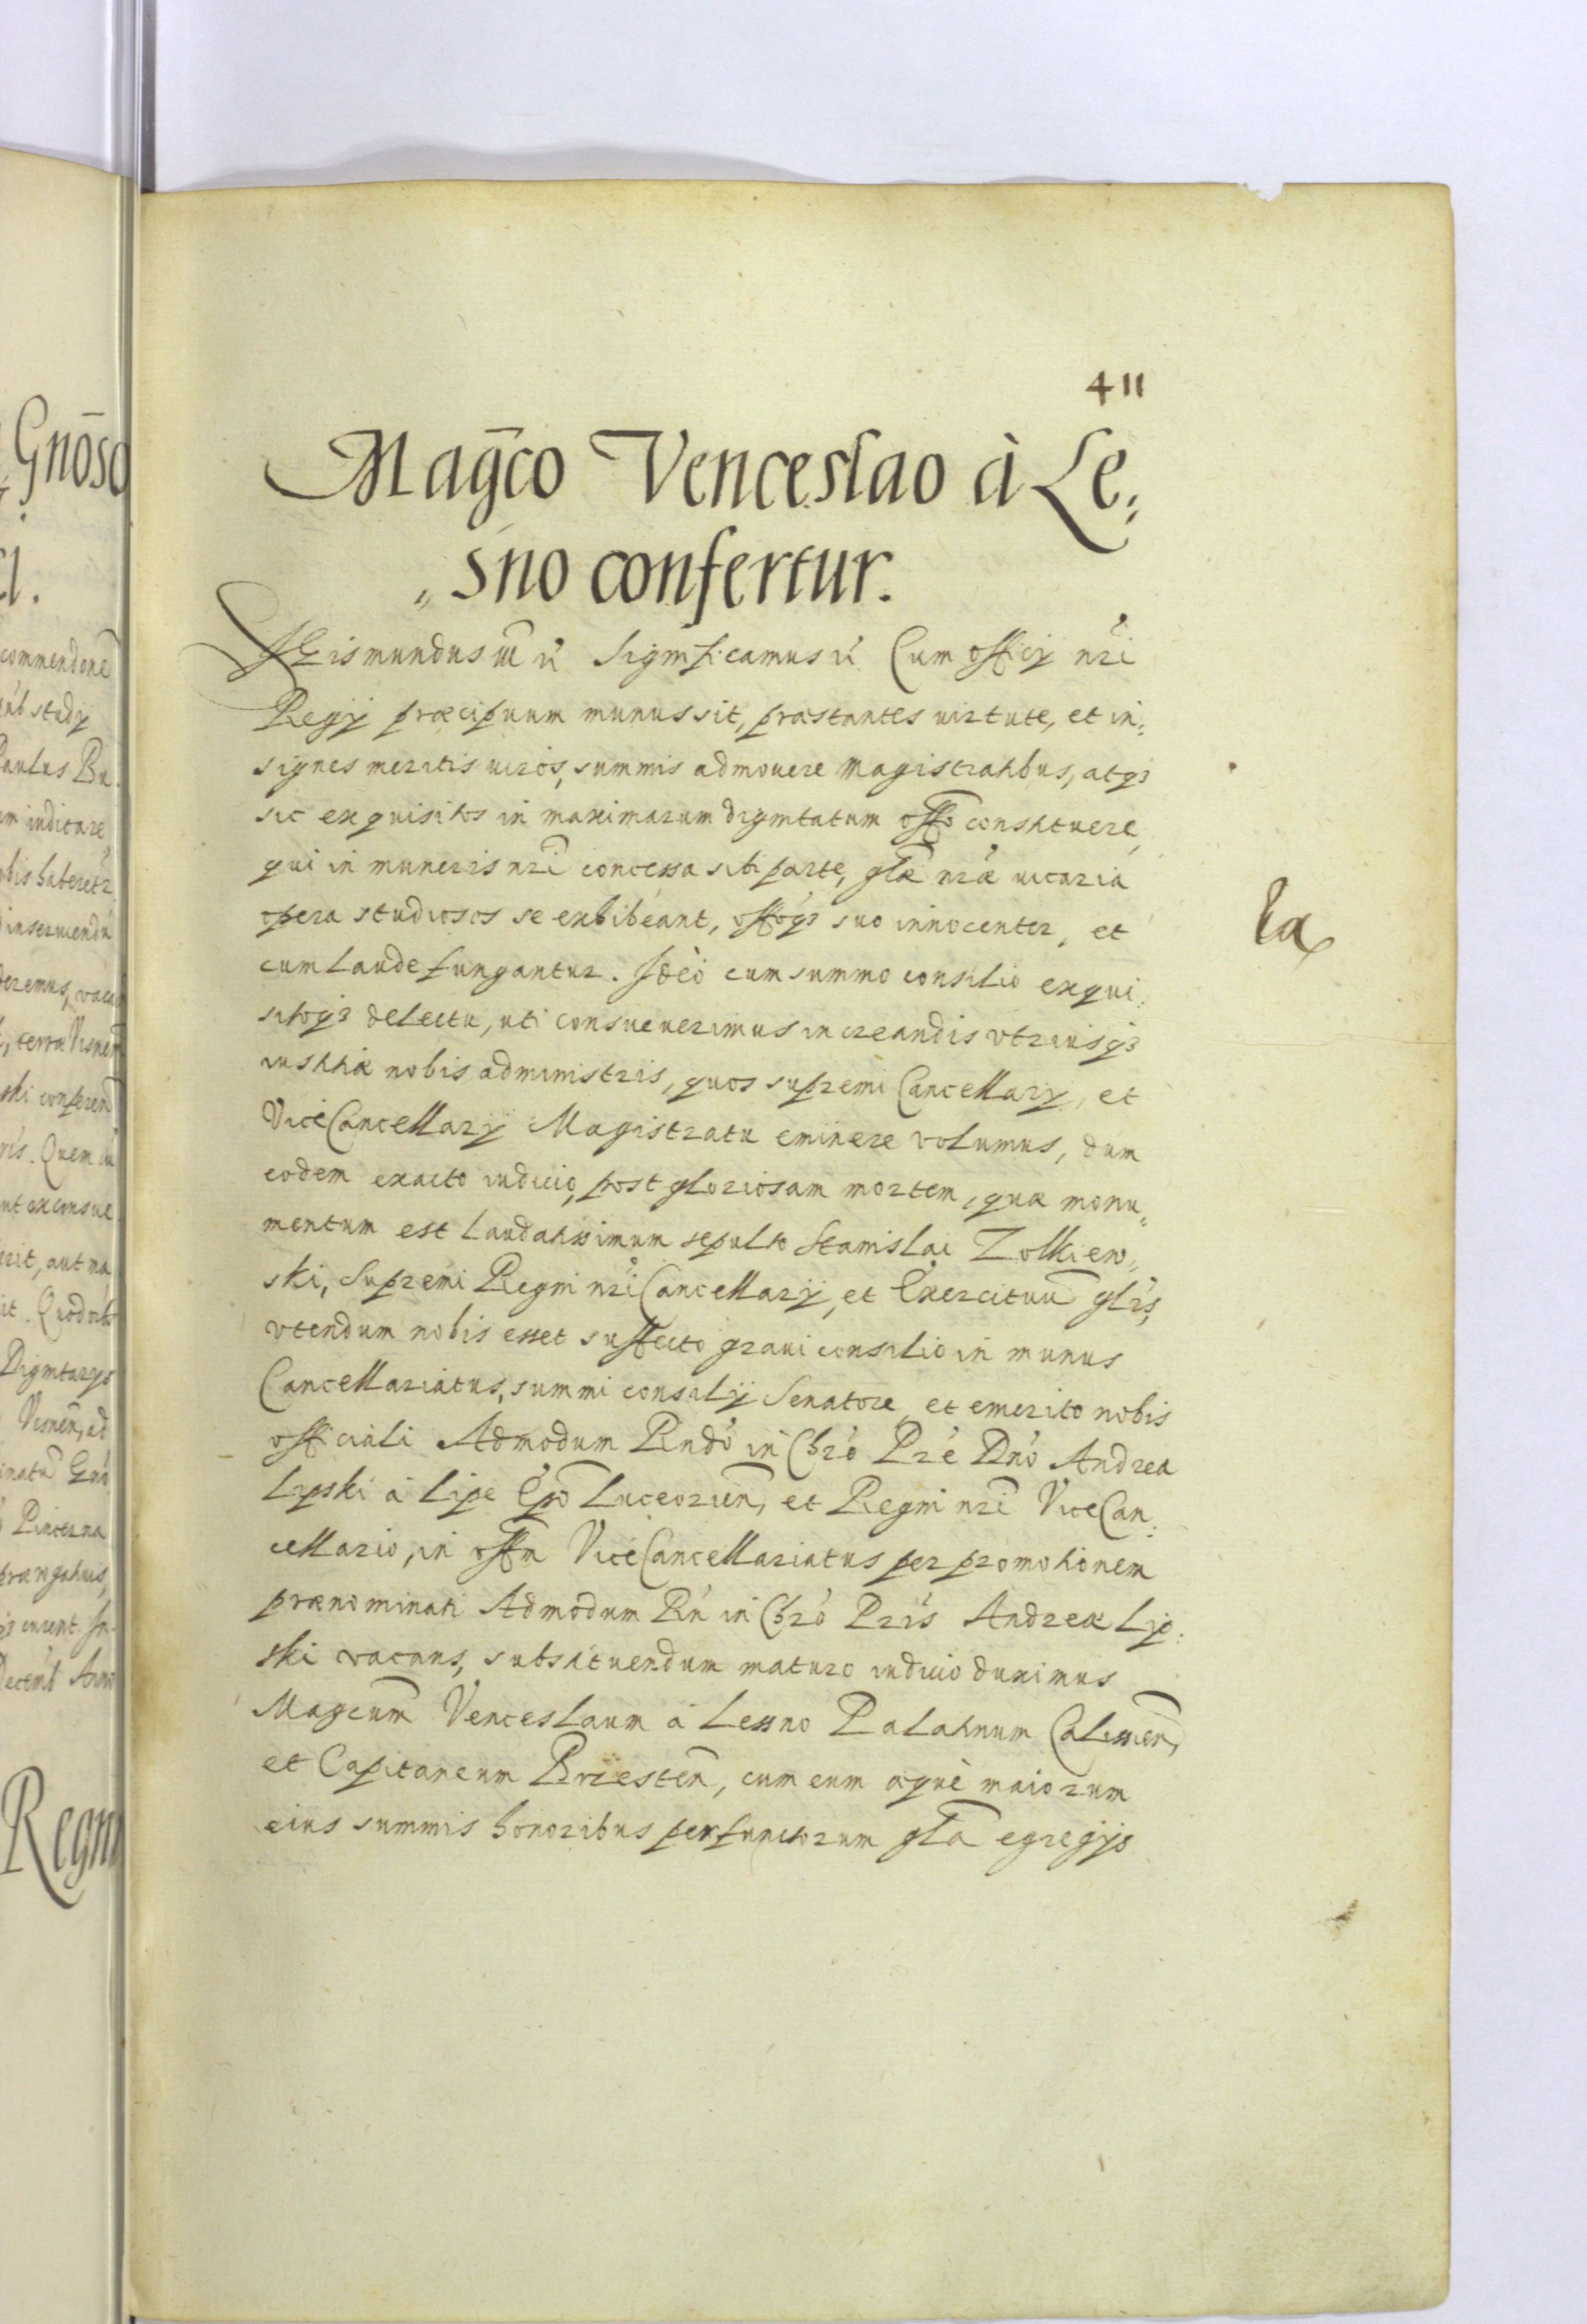 411
Magco Venceslao à Le,
„sno confertur.
Sigismundus III etc. Significamus etc. Cum officij nri
Regij præcipuum munus sit, præstantes uirtute, et in,
signes meritis uiros, summis admouere Magistratibus, atq3
sic exquisitos in maximarum dignitatum offo constituere,
qui in muneris nri concessa sibi parte, glæ nræ uicaria
opera studiosos se exhibeant, offoq3 suo innocenter, et
cum laude fungantur. Ideò cum summo consilio exqui,
sitoq3 delectu, uti consueuerimus in creandis vtriusq3
iustitiæ nobis administris, quos supremi Cancellarij, et
ViceCancellarij Magistratu eminere volumus, dum
eodem exacto iudicio, post gloriosam mortem, quæ monu„
mentum est laudatissimum sepulto Stanislai Zolkiew„
ski, Supremi Regni nri Cancellarij, et Exercituu glis,
vtendum nobis esset suffecto graui consilio in munus
Cancellariatus, summi consilij Senatore, et emerito nobis
officiali Admodum Rndo in Chro Pre Dno Andrea
Lipski à Lipe Epo Luceorien, et Regni nri ViceCan,
cellario, in offm ViceCancellariatus per promotionem
prænominati Admodum Rn in Chro Pris Andreæ Lip,
ski vacans, substituendum maturo iudicio duximus
Magcum Venceslaum à Lessno Palatinum Calissien,
et Capitaneum Brzesten, cum eum æquè maiorum
eius summis honoribus perfunctorum gla egregijs
la
Gnoso
commendone
studij
Paulus Bu
iudicare
haberetr
inseruiendu
deremus, vaca
terræ Visnen
ski conferen
Quem
aut ma
Quod
Dignitarijs
Visnen, ad
Pincerna
prærogatiuis,
Regni